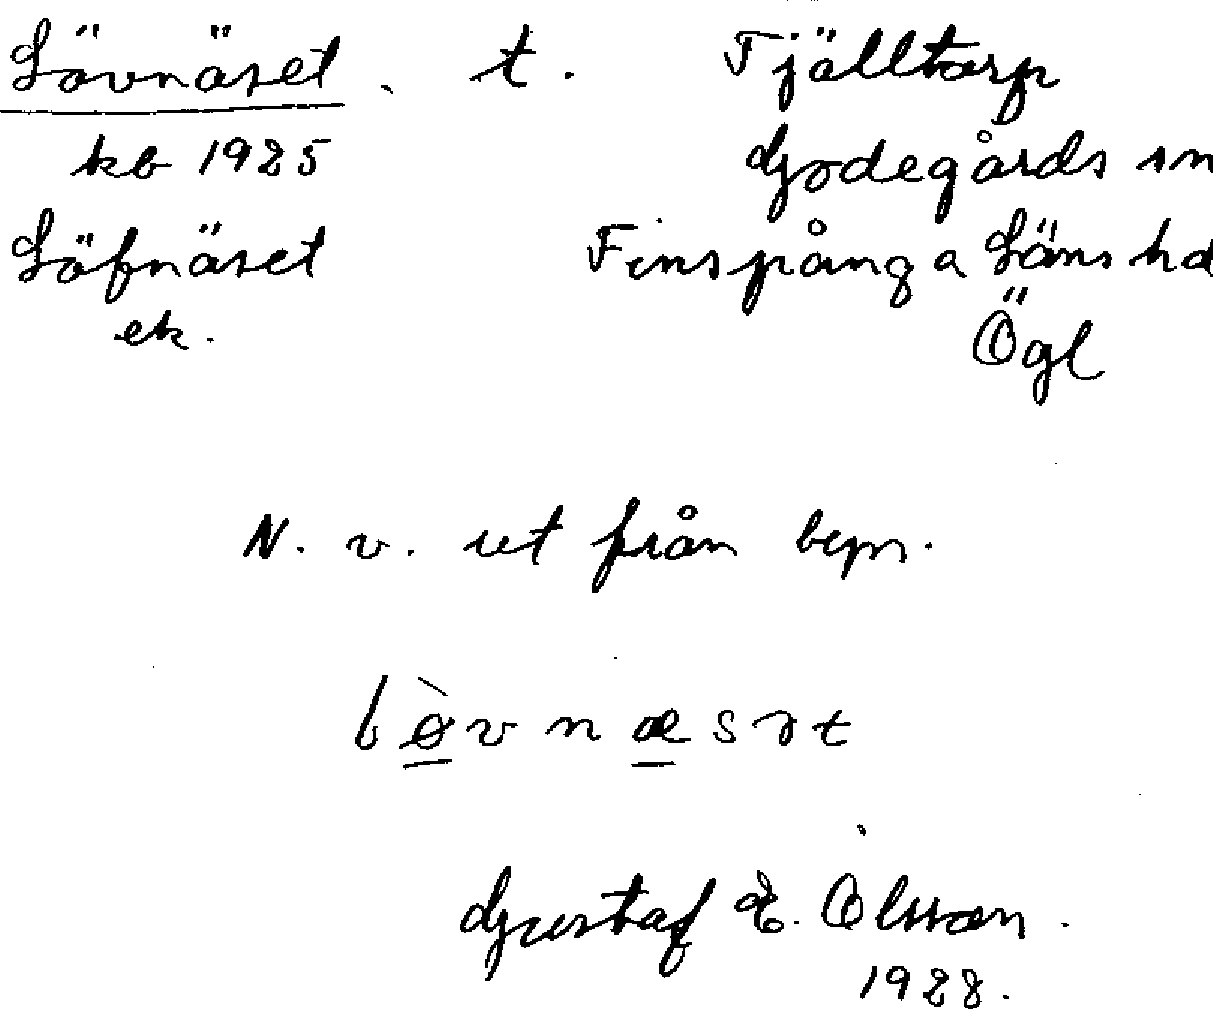 Lövnäset. t. Fjälltorp
kb 1925 Godegårds sn
Löfnäset Finspånga Läns hd
ek. Ögl
N. v. ut från bgn.
lø̀vnæsət
Gustaf E. Olsson.
1928.